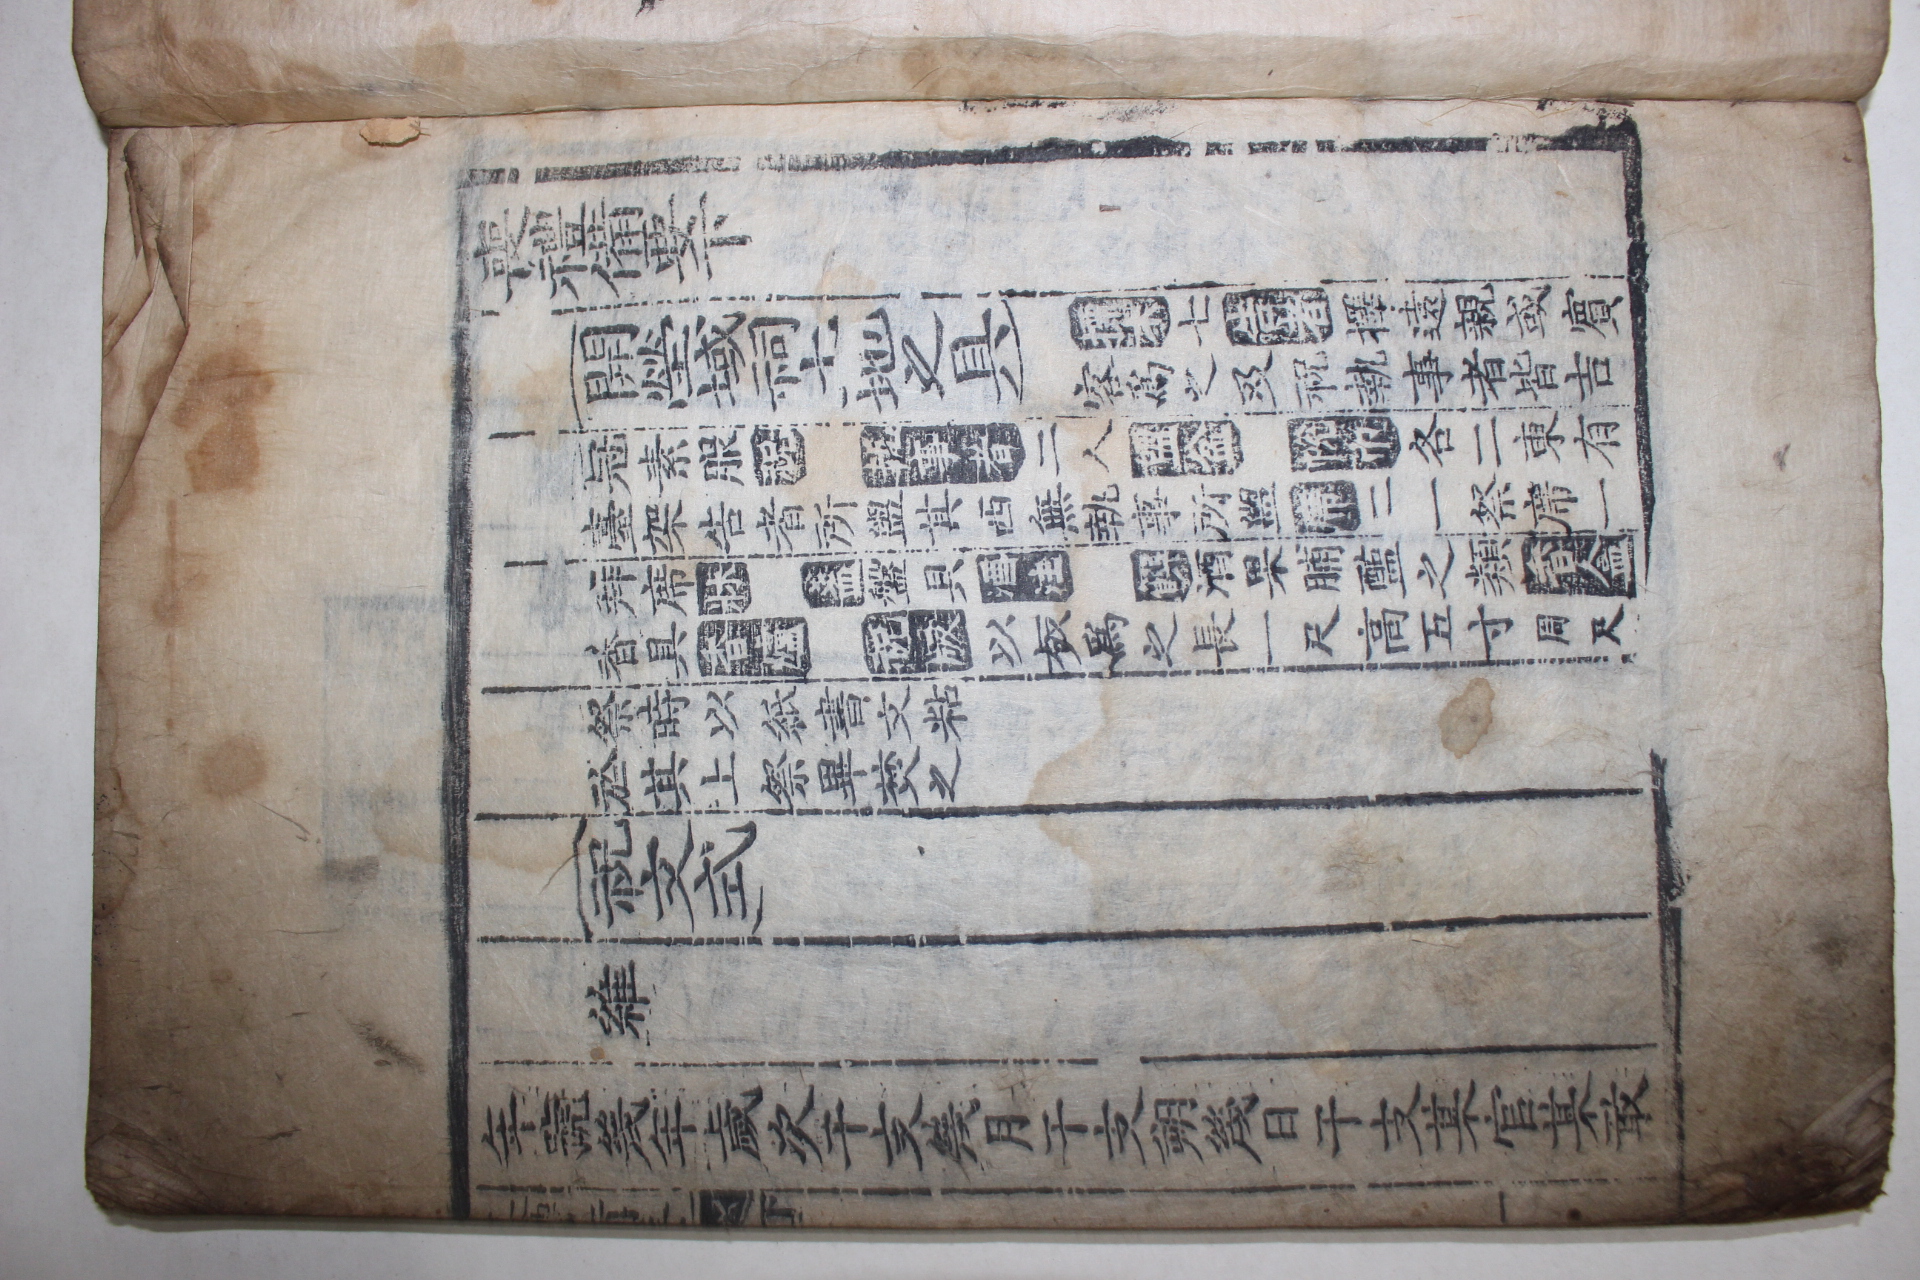 喪禮備要下
開塋域祠土地之具 標木七告者擇遠親或賓
客爲之及祝執事者皆吉
冠素服祝 執事者二人盥盆 帨巾各二東有
臺架告者所盥其西無執事所盥席二一祭席一
拜席牀 盞盤具酒注 饌酒果脯醢之類香盒
香具香爐 祝版以板爲之長一尺高五寸周尺
祭時以紙書文粘
於其上祭畢焚之
祝文式
維
年號幾年歲次干支幾月干支朔幾日干支某官某敢